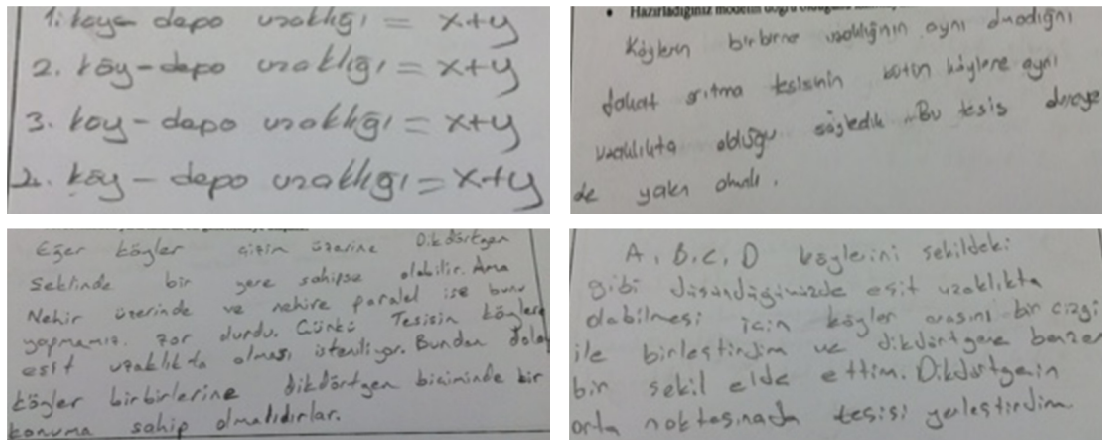 1. köye depo uzaklığı = x+y
2. köy-depo uzaklığı = x+y
3. koy-depo uzaklığı = x+y
4. köy-depo uzaklığı = x+y
• Hazırladığınız modelin doğru olduğunu
Köylerin birbirine uzaklığının aynı olmadığını
fakat arıtma tesisinin bütün köylere aynı
uzaklıkta olduğu söyledik. Bu tesis dereye
de yakın olmalı.
Eğer köyler çizim üzerine Dikdörtgen
Seklinde bir yere sahipse olabilir. Ama
Nehir üzerinde ve nehire paralel ise bunu
yapmamız zor durdu. Çünkü Tesisin köylere
esit uzaklıkta olması isteniliyor. Bundan dolayı
köyler birbirlerine dikdörtgen biçiminde bir
konuma sahip olmalıdırlar.
A, B, C, D köylerini sekildeki
gibi düsündüğümüzde esit uzaklıkta
olabilmesi icin köyler arasını bir cizgi
ile birlestirdim ve dikdörtgene benzer
bir sekil elde ettim. Dikdörtgenin
orta noktasınada tesisi yerlestirdim.